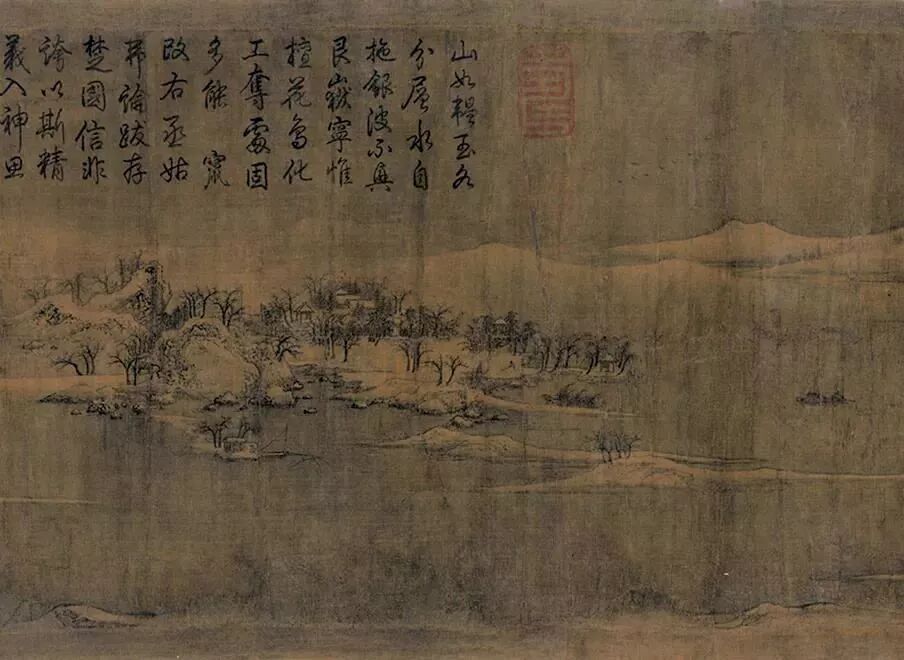 山如韞玉各
分層水自
拖銀波不興
艮嶽寧惟
擅花鳥化
工奪處固
多能 竄
改右丞姑
弗論跋存
楚國信非
誇以斯精
義入神思